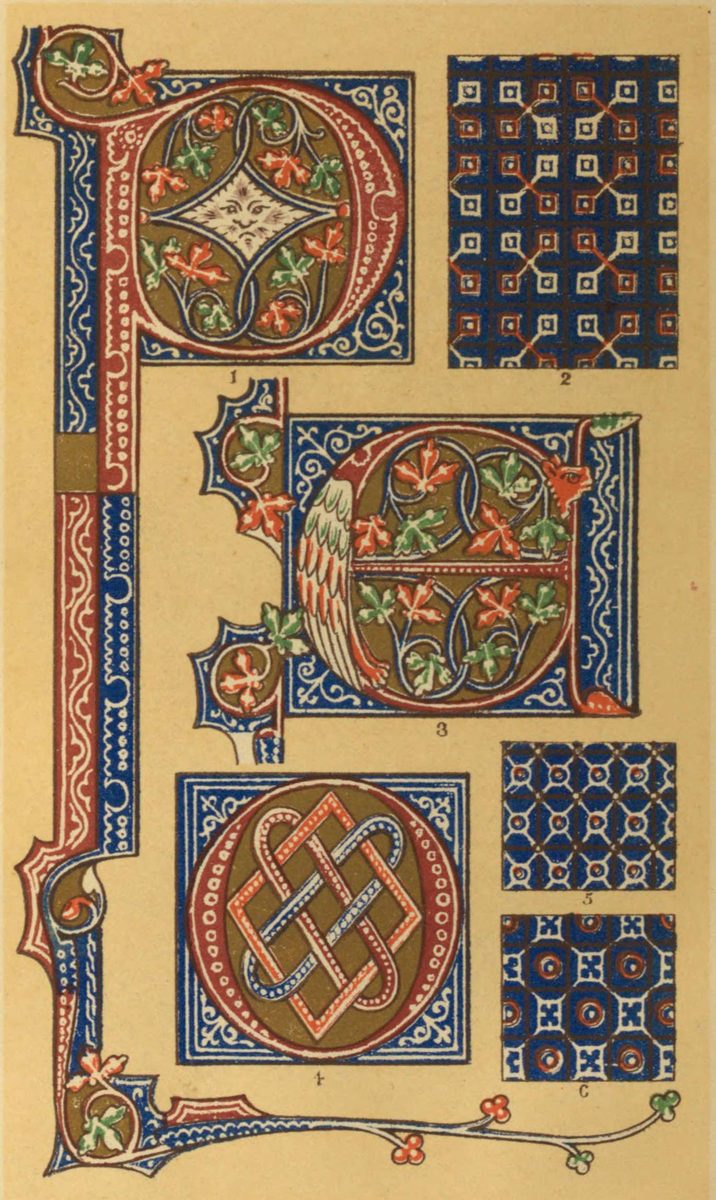 P
1
2
E
3
O
5
4
6